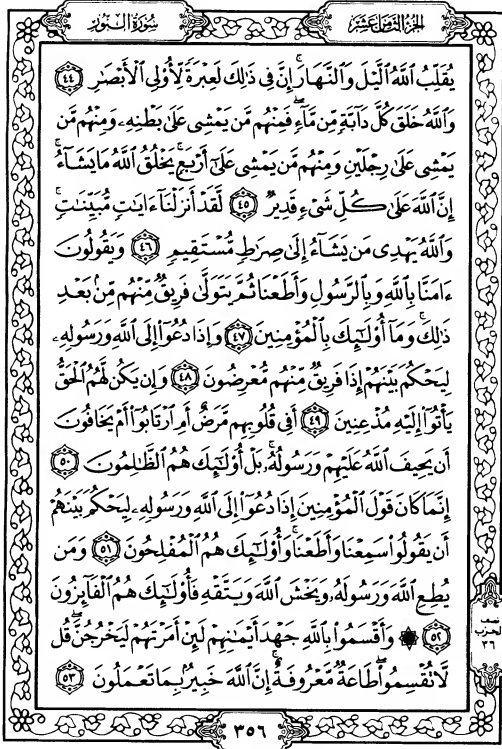 سُورَةُ النُّورِ
الجُزْءُ الثَّامِنَ عَشَرَ
يُقَلِّبُ ٱللَّهُ ٱلَّيْلَ وَٱلنَّهَارَ ۚ إِنَّ فِى ذَٰلِكَ لَعِبْرَةً لِّأُو۟لِى ٱلْأَبْصَٰرِ ٤٤
وَٱللَّهُ خَلَقَ كُلَّ دَآبَّةٍ مِّن مَّآءٍ ۖ فَمِنْهُم مَّن يَمْشِى عَلَىٰ بَطْنِهِۦ وَمِنْهُم مَّن
يَمْشِى عَلَىٰ رِجْلَيْنِ وَمِنْهُم مَّن يَمْشِى عَلَىٰٓ أَرْبَعٍ ۚ يَخْلُقُ ٱللَّهُ مَا يَشَآءُ ۚ
إِنَّ ٱللَّهَ عَلَىٰ كُلِّ شَىْءٍ قَدِيرٌ ٤٥ لَّقَدْ أَنزَلْنَآ ءَايَٰتٍ مُّبَيِّنَٰتٍ ۚ
وَٱللَّهُ يَهْدِى مَن يَشَآءُ إِلَىٰ صِرَٰطٍ مُّسْتَقِيمٍ ٤٦ وَيَقُولُونَ
ءَامَنَّا بِٱللَّهِ وَبِٱلرَّسُولِ وَأَطَعْنَا ثُمَّ يَتَوَلَّىٰ فَرِيقٌ مِّنْهُم مِّنۢ بَعْدِ
ذَٰلِكَ ۚ وَمَآ أُو۟لَٰٓئِكَ بِٱلْمُؤْمِنِينَ ٤٧ وَإِذَا دُعُوٓا۟ إِلَى ٱللَّهِ وَرَسُولِهِۦ
لِيَحْكُمَ بَيْنَهُمْ إِذَا فَرِيقٌ مِّنْهُم مُّعْرِضُونَ ٤٨ وَإِن يَكُن لَّهُمُ ٱلْحَقُّ
يَأْتُوٓا۟ إِلَيْهِ مُذْعِنِينَ ٤٩ أَفِى قُلُوبِهِم مَّرَضٌ أَمِ ٱرْتَابُوٓا۟ أَمْ يَخَافُونَ
أَن يَحِيفَ ٱللَّهُ عَلَيْهِمْ وَرَسُولُهُۥ ۚ بَلْ أُو۟لَٰٓئِكَ هُمُ ٱلظَّٰلِمُونَ ٥٠
إِنَّمَا كَانَ قَوْلَ ٱلْمُؤْمِنِينَ إِذَا دُعُوٓا۟ إِلَى ٱللَّهِ وَرَسُولِهِۦ لِيَحْكُمَ بَيْنَهُمْ
أَن يَقُولُوا۟ سَمِعْنَا وَأَطَعْنَا ۚ وَأُو۟لَٰٓئِكَ هُمُ ٱلْمُفْلِحُونَ ٥١ وَمَن
يُطِعِ ٱللَّهَ وَرَسُولَهُۥ وَيَخْشَ ٱللَّهَ وَيَتَّقْهِ فَأُو۟لَٰٓئِكَ هُمُ ٱلْفَآئِزُونَ
٥٢ ۞ وَأَقْسَمُوا۟ بِٱللَّهِ جَهْدَ أَيْمَٰنِهِمْ لَئِنْ أَمَرْتَهُمْ لَيَخْرُجُنَّ ۖ قُل
لَّا تُقْسِمُوا۟ ۖ طَاعَةٌ مَّعْرُوفَةٌ ۚ إِنَّ ٱللَّهَ خَبِيرٌۢ بِمَا تَعْمَلُونَ ٥٣
نصف
الحزب
٣٦
٣٥٦